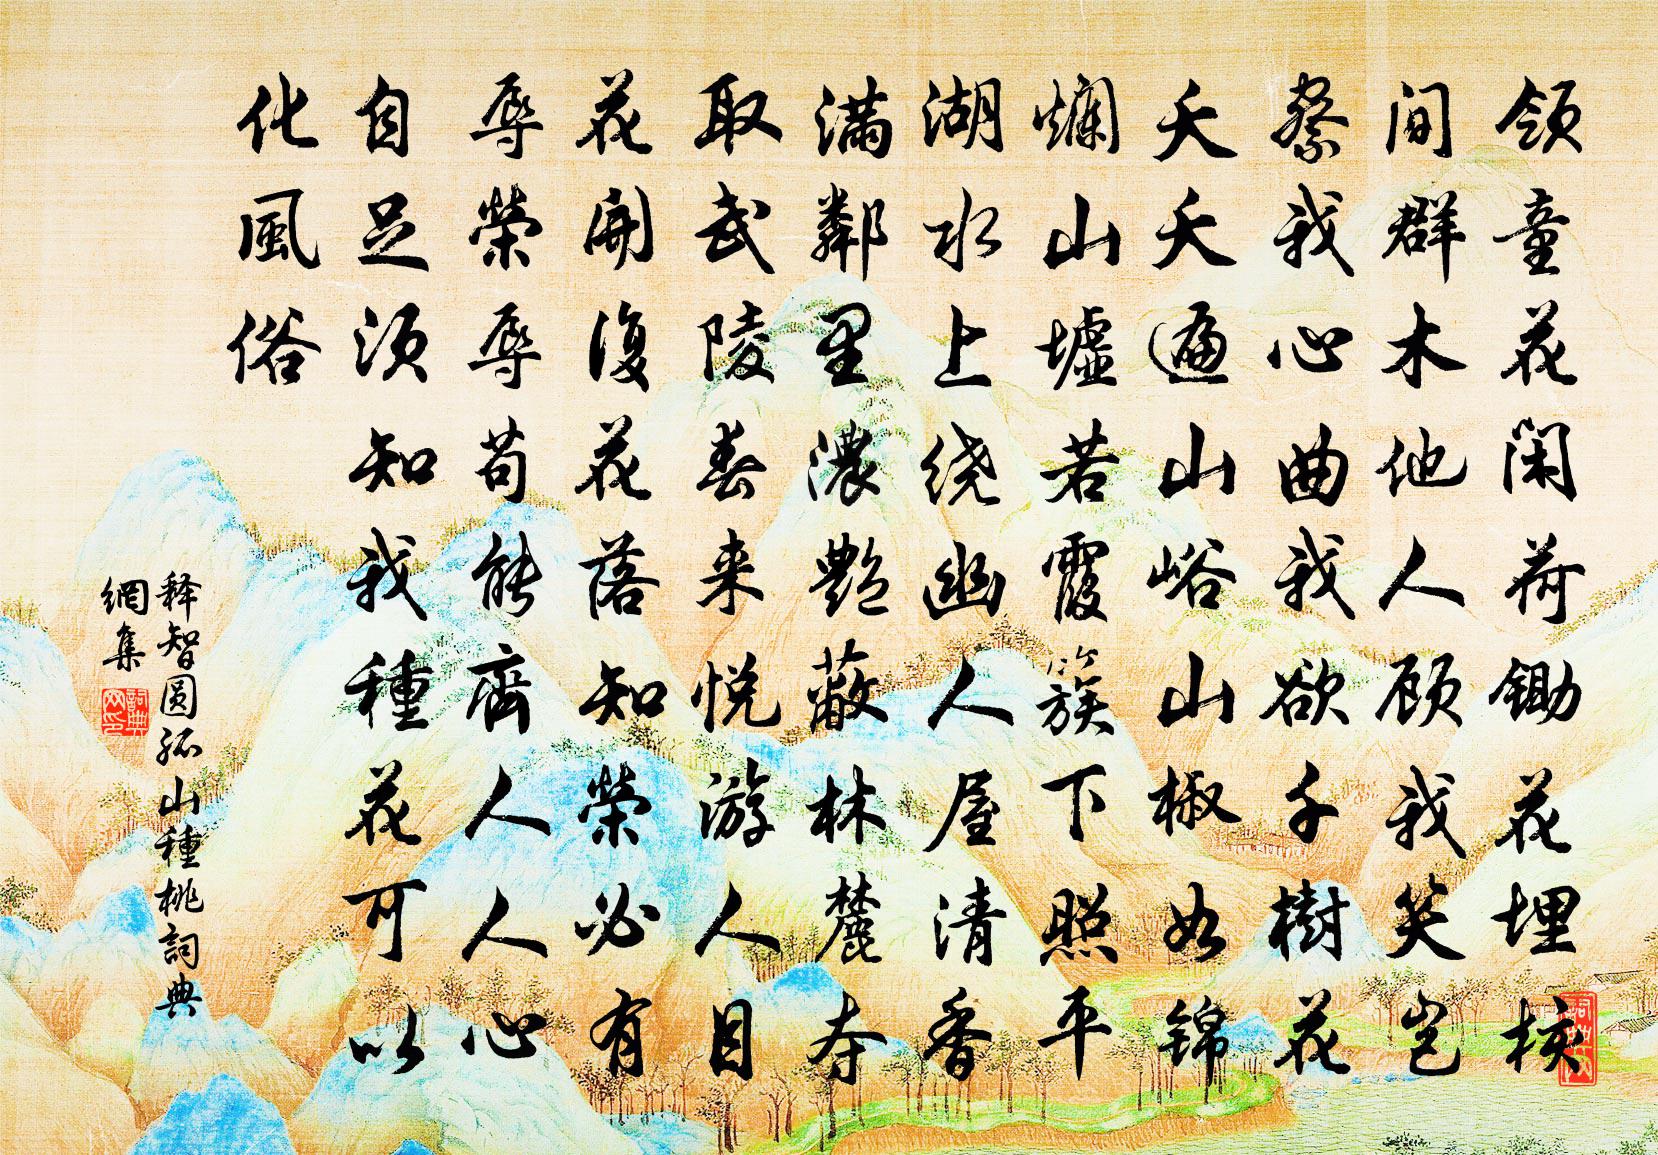 领童花闲荷鋤花埋核
间群木他人顾我笑岂
察我心曲我欲千樹花
夭夭遍山峪山椒如锦
爛山墟若霞簇下照平
湖水上绕幽人屋清香
满鄰里濃艷蔽林麓夺
取武陵春来悦游人目
花開復花落知榮必有
辱榮辱苟能齊人人心
自足须知我種花可以
化風俗
释智圆孤山種桃詞典
網集